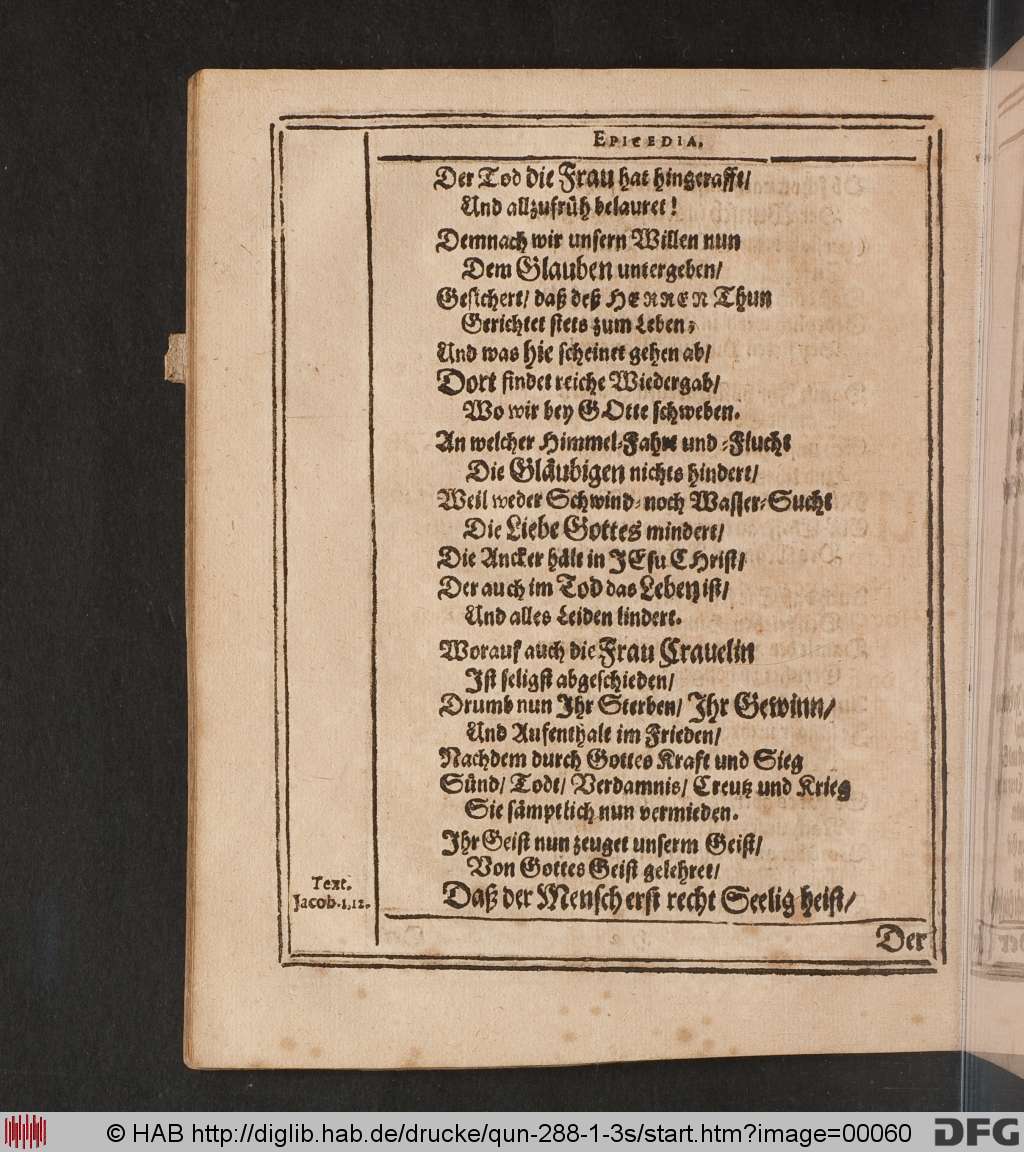 EPICEDIA.
Der Tod die Frau hat hingerafft/
Und allzufrüh belauret!
Demnach wir unsern Willen nun
Dem Glauben untergeben/
Gesichert/ daß deß HERREN Thun
Gerichtet stets zum Leben;
Und was hie scheinet gehen ab/
Dort findet reiche Wiedergab/
Wo wir bey GOtte schweben.
An welcher Himmel-Fahrt und -Flucht
Die Gläubigen nichts hindert/
Weil weder Schwind- noch Wasser-Sucht
Die Liebe Gottes mindert/
Die Ancker hält in JEsu CHrist/
Der auch im Tod das Leben ist/
Und alles Leiden lindert.
Worauf auch die Frau Cravelin
Ist seligst abgeschieden/
Drumb nun Ihr Sterben/ Ihr Gewinn/
Und Aufenthalt im Frieden/
Nachdem durch Gottes Kraft und Sieg
Sünd/ Todt/ Verdamnis/ Creutz und Krieg
Sie sämptlich nun vermieden.
Ihr Geist nun zeuget unserm Geist/
Von Gottes Geist gelehret/
Text.
Jacob.1.12.
Daß der Mensch erst recht Seelig heist/
Der
© HAB http://diglib.hab.de/drucke/qun-288-1-3s/start.htm?image=00060
DFG